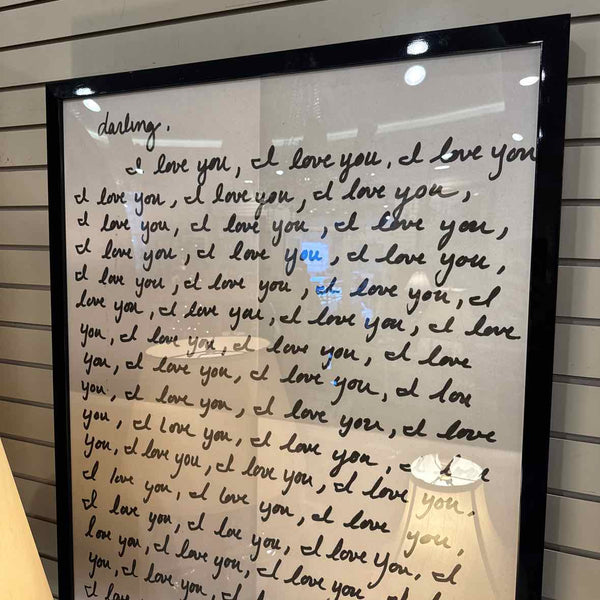 darling.
I love you, I love you, I love you
I love you, I love you, I love you,
I love you, I love you, I love you,
I love you, I love you, I love you,
I love you, I love you, I love you, I
love you, I love you, I love you, I love
you, I love you, I love you, I love
you, I love you, I love you, I love
you, I love you, I love you, I love
you, I love you, I love you, I love
you, I love you, I love you, I love you,
I love you, I love you, I love you,
I love you, I love you, I love you, I
love you, I love you, I love you, I
you, I love you, I love you
I love